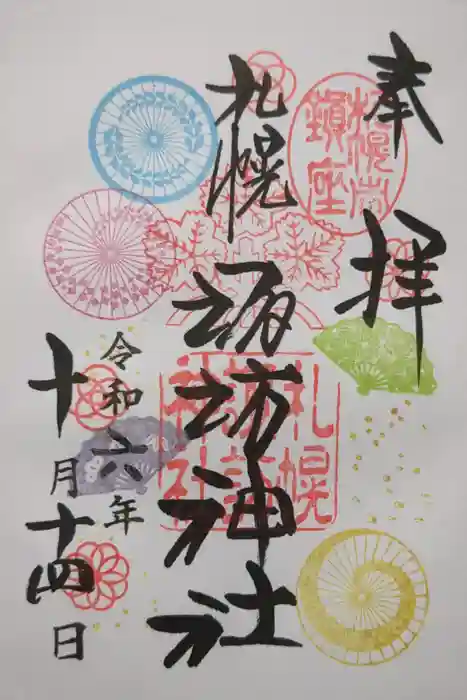 奉拝
札幌市
鎮座
札幌
諏訪神社
札幌
諏訪
神社
令和六年
十月十四日